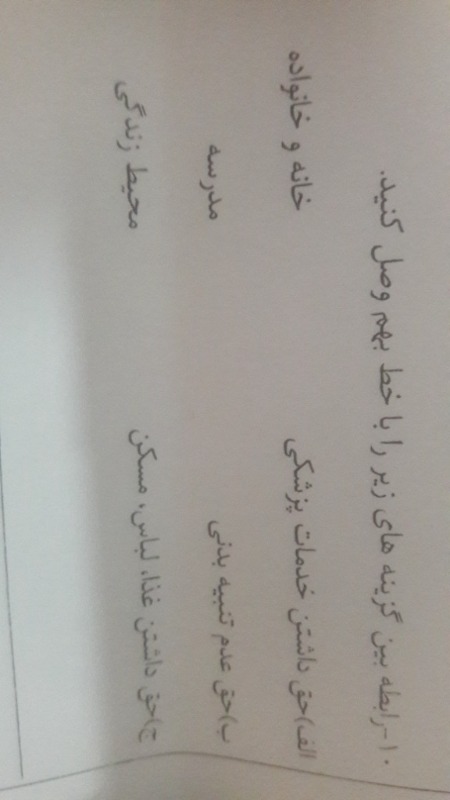 ۱۰-رابطه بین گزینه های زیر را با خط بهم وصل کنید.
الف)حق داشتن خدمات پزشکی خانه و خانواده
ب)حق عدم تنبیه بدنی مدرسه
ج)حق داشتن غذا، لباس، مسکن محیط زندگی